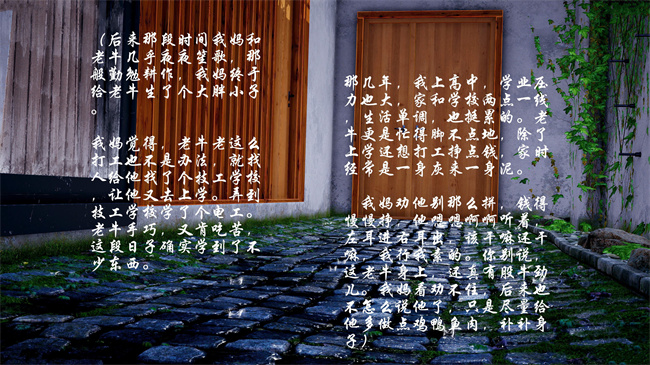 (后来那段时间我妈和
老牛几乎夜夜笙歌,那
般勤勉耕作,我妈终于
给老牛生了个大胖小子
。
我妈觉得,老牛老这么
打工也不是办法,就找
人给他找了个技工学校
,让他又去上学。弄到
技工学校学了个电工。
老牛手巧,又肯吃苦,
这段日子确实学到了不
少东西。
那几年,我上高中,学业压
力也大,家和学校两点一线
,生活单调,也挺累的。老
牛更是忙得脚不点地,除了
上学还想打工挣点钱,家时
经常是一身灰来一身泥。
我妈劝他别那么拼,钱得
慢慢挣,他嗯嗯啊啊听着,
左耳进右耳出,该干嘛还干
嘛,我行我素的。你别说,
这老牛身上,还真有股牛劲
儿。我妈看劝不住,后来也
不怎么说他了,只是尽量给
他多做点鸡鸭鱼肉,补补身
子)